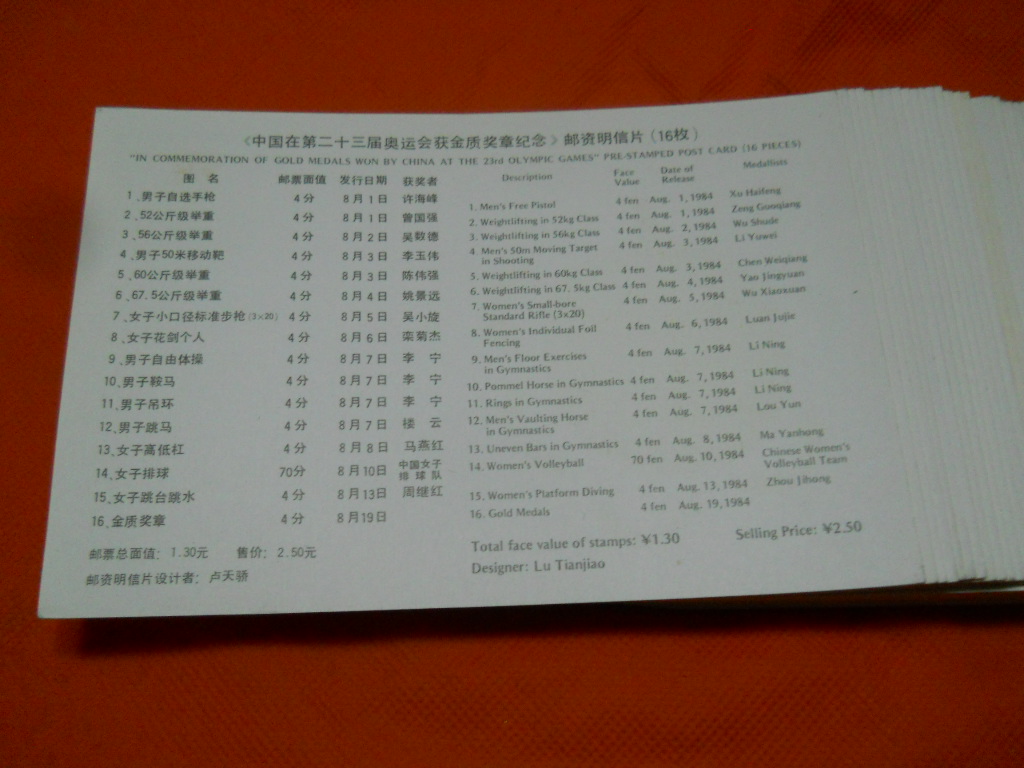 《中国在第二十三届奥运会获金质奖章纪念》邮资明信片(16枚)
"IN COMMEMORATION OF GOLD MEDALS WON BY CHINA AT THE 23rd OLYMPIC GAMES" PRE-STAMPED POST CARD (16 PIECES)
图 名 邮票面值 发行日期 获奖者
1、男子自选手枪 4分 8月1日 许海峰
2、52公斤级举重 4分 8月1日 曾国强
3、56公斤级举重 4分 8月2日 吴数德
4、男子50米移动靶 4分 8月3日 李玉伟
5、60公斤级举重 4分 8月3日 陈伟强
6、67.5公斤级举重 4分 8月4日 姚景远
7、女子小口径标准步枪(3×20) 4分 8月5日 吴小旋
8、女子花剑个人 4分 8月6日 栾菊杰
9、男子自由体操 4分 8月7日 李 宁
10、男子鞍马 4分 8月7日 李 宁
11、男子吊环 4分 8月7日 李 宁
12、男子跳马 4分 8月7日 楼 云
13、女子高低杠 4分 8月8日 马燕红
14、女子排球 70分 8月10日 中国女子
排球队
15、女子跳台跳水 4分 8月13日 周继红
16、金质奖章 4分 8月19日
邮票总面值：1.30元 售价：2.50元
邮资明信片设计者：卢天骄
Description Face Value Date of Release Medallists
1. Men's Free Pistol 4 fen Aug. 1, 1984 Xu Haifeng
2. Weightlifting in 52kg Class 4 fen Aug. 1, 1984 Zeng Guoqiang
3. Weightlifting in 56kg Class 4 fen Aug. 2, 1984 Wu Shude
4. Men's 50m Moving Target 4 fen Aug. 3, 1984 Li Yuwei
in Shooting
5. Weightlifting in 60kg Class 4 fen Aug. 3, 1984 Chen Weiqiang
6. Weightlifting in 67.5kg Class 4 fen Aug. 4, 1984 Yao Jingyuan
7. Women's Small-bore 4 fen Aug. 5, 1984 Wu Xiaoxuan
Standard Rifle (3×20)
8. Women's Individual Foil 4 fen Aug. 6, 1984 Luan Jujie
Fencing
9. Men's Floor Exercises 4 fen Aug. 7, 1984 Li Ning
in Gymnastics
10. Pommel Horse in Gymnastics 4 fen Aug. 7, 1984 Li Ning
11. Rings in Gymnastics 4 fen Aug. 7, 1984 Li Ning
12. Men's Vaulting Horse 4 fen Aug. 7, 1984 Lou Yun
in Gymnastics
13. Uneven Bars in Gymnastics 4 fen Aug. 8, 1984 Ma Yanhong
14. Women's Volleyball 70 fen Aug. 10, 1984 Chinese Women's
Volleyball Team
15. Women's Platform Diving 4 fen Aug. 13, 1984 Zhou Jihong
16. Gold Medals 4 fen Aug. 19, 1984
Total face value of stamps: ¥1.30 Selling Price: ¥2.50
Designer: Lu Tianjiao